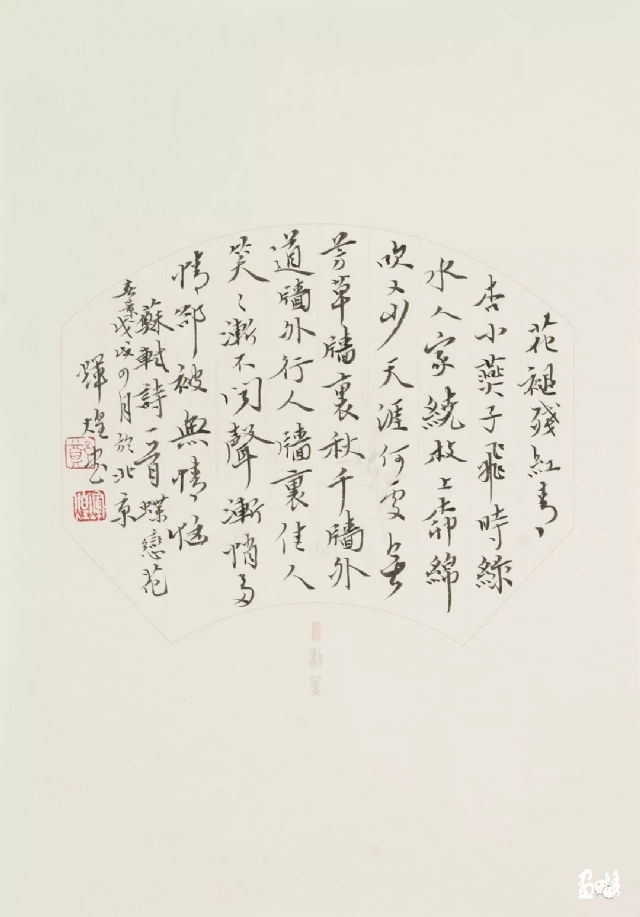 花褪殘紅青
杏小燕子飛時綠
水人家繞枝上柳綿
吹又少天涯何處無
芳草牆裏秋千牆外
道牆外行人牆裏佳人
笑〻漸不聞聲漸悄多
情卻被無情惱
蘇軾詩一首蝶戀花
戊戌四月於北京
輝煌書